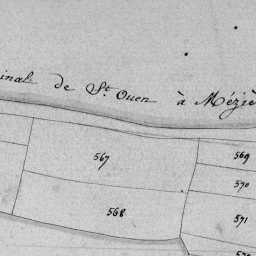 de St. Ouen à
567
569
570
568
571